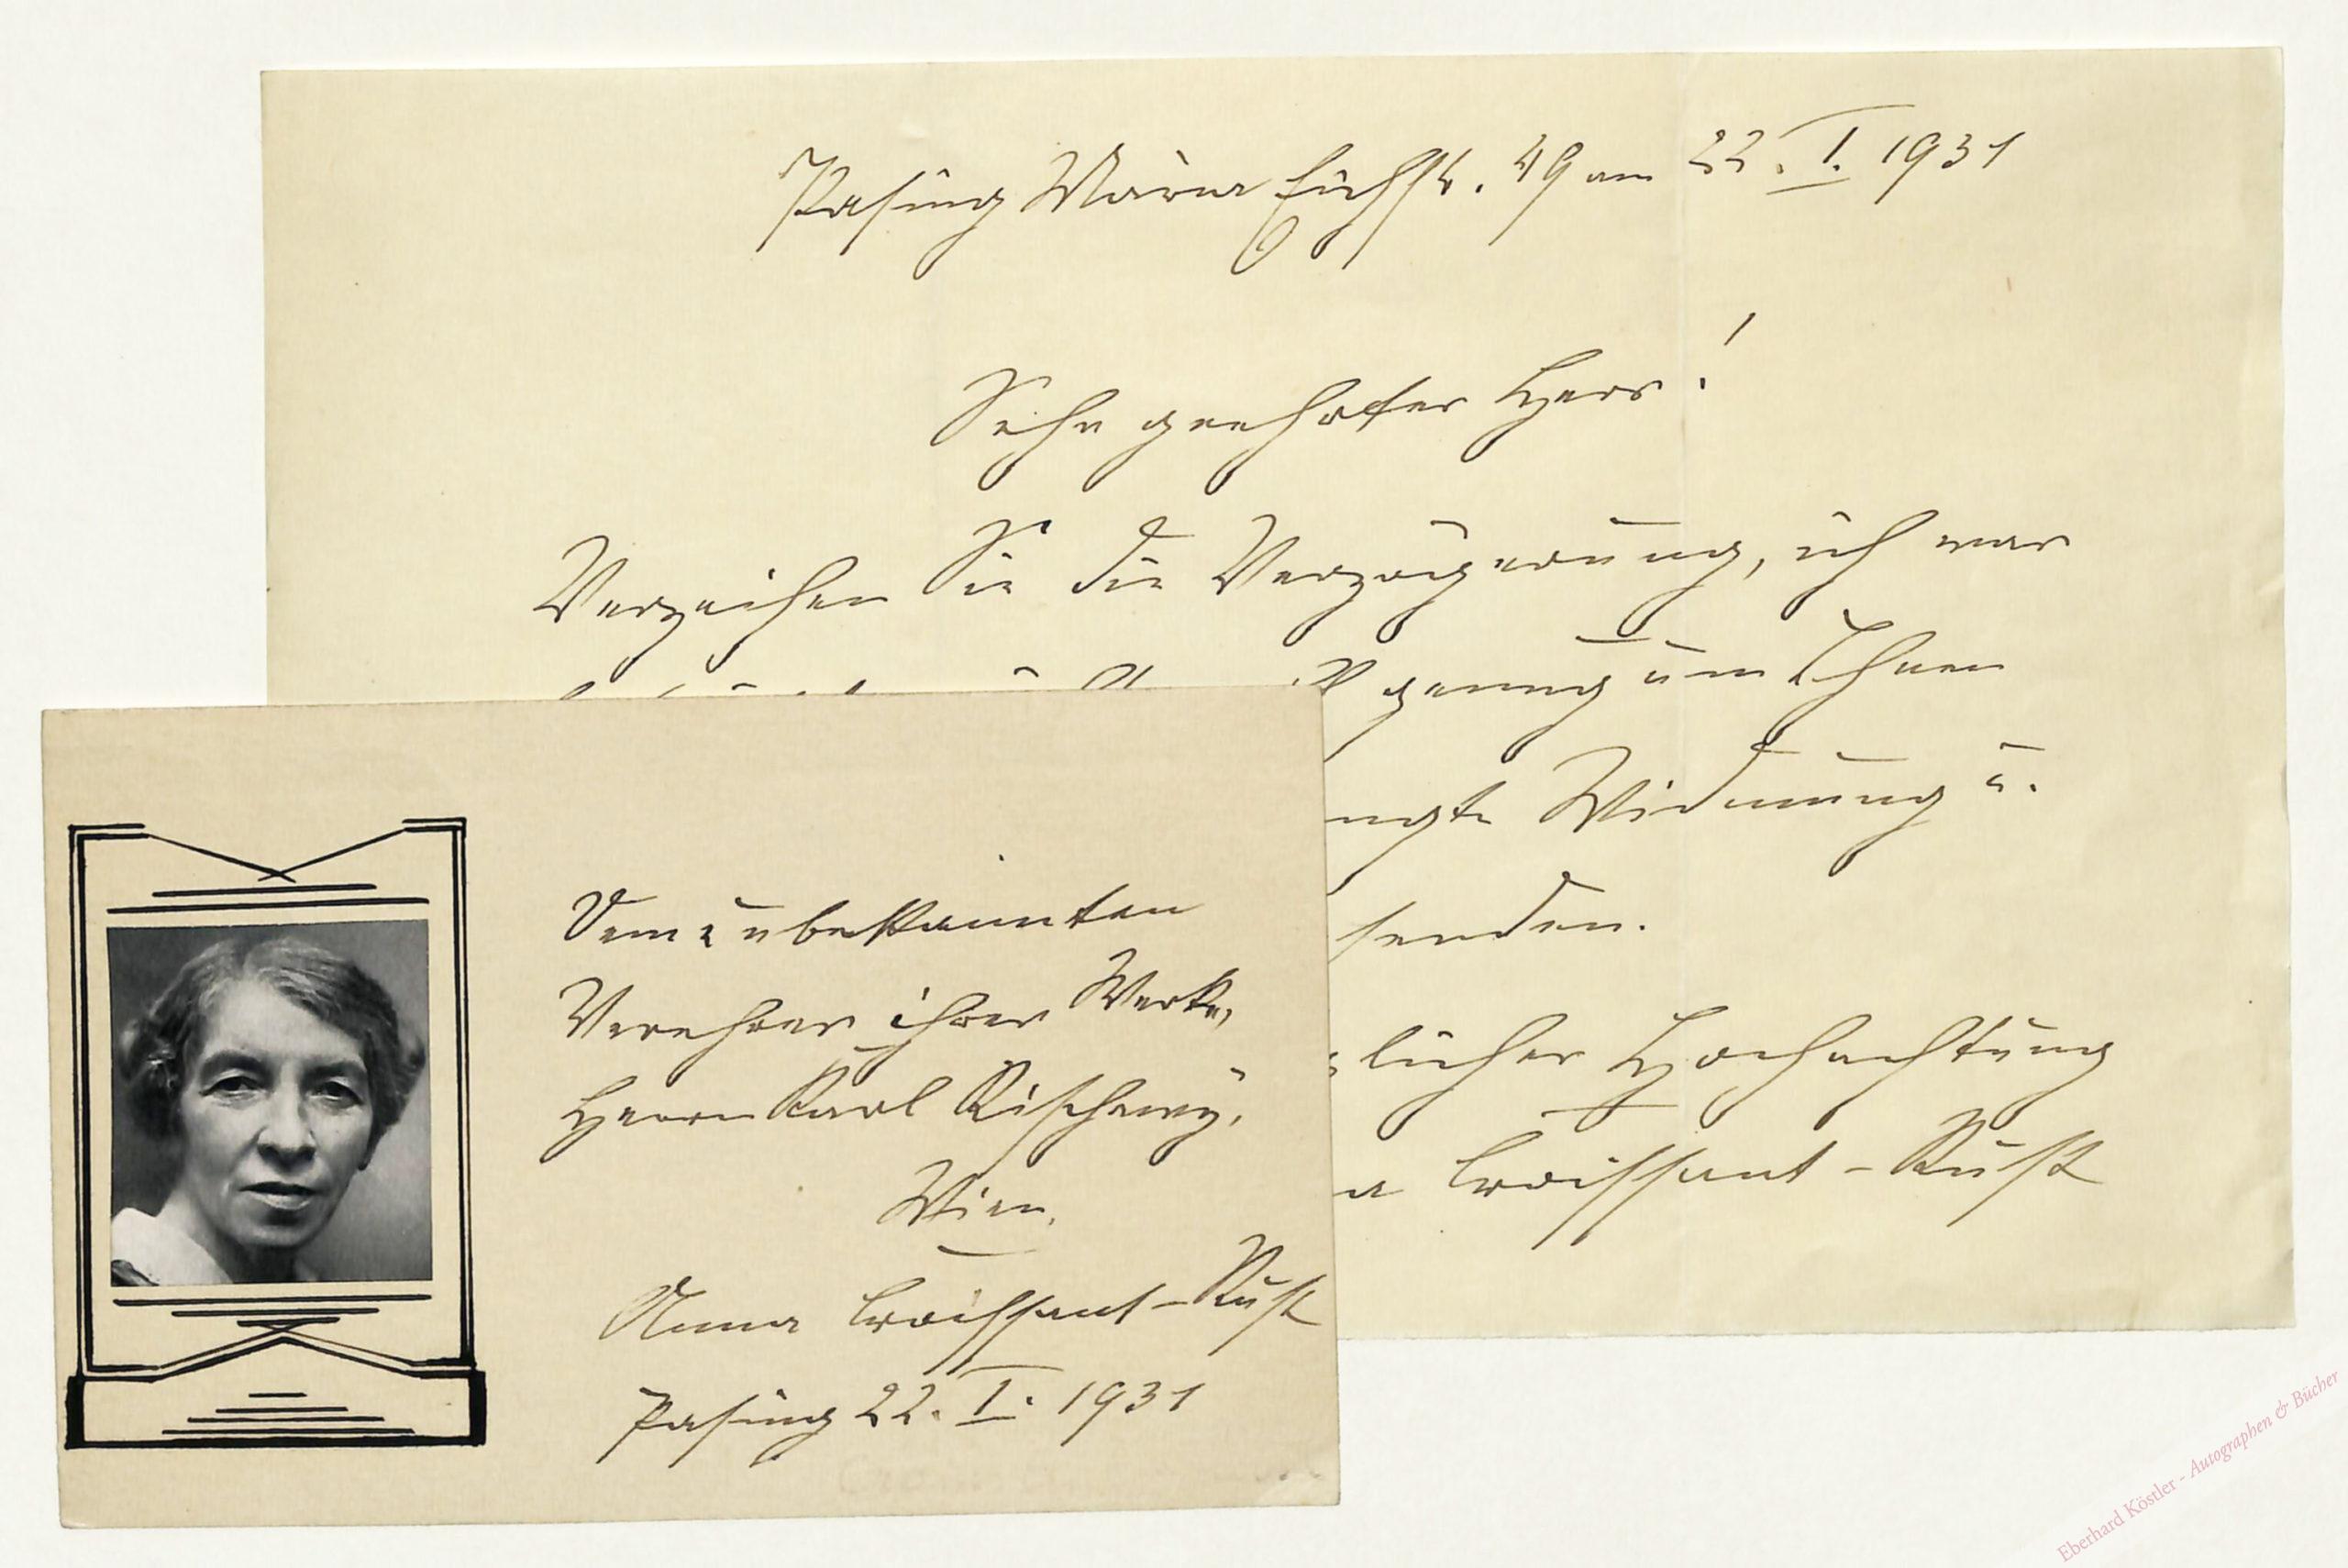 Pasing Maria Eichstr. 49 am 22. I. 1931
Sehr geehrter Herr!
Verzeihen Sie die Verzögerung, ich war
genug um Ihnen
ngte Widmung u.
senden.
licher Hochachtung
a Croissant-Rust
Dem unbekannten
Verehrer ihrer Werke,
Herrn Karl Rischawy,
Wien.
Anna Croissant-Rust
Pasing 22. I. 1931
Eberhard Köstler - Autographen & Bücher